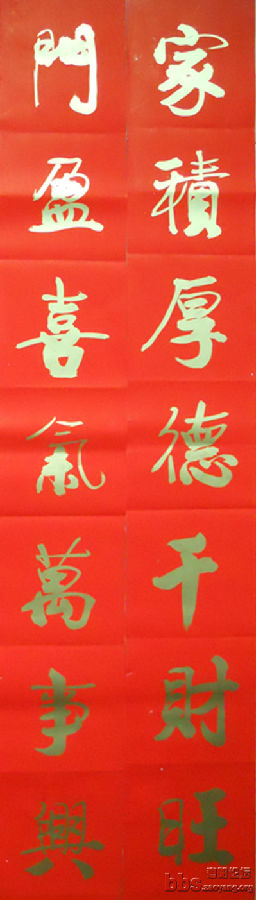 家積厚德千財旺
門盈喜氣萬事興